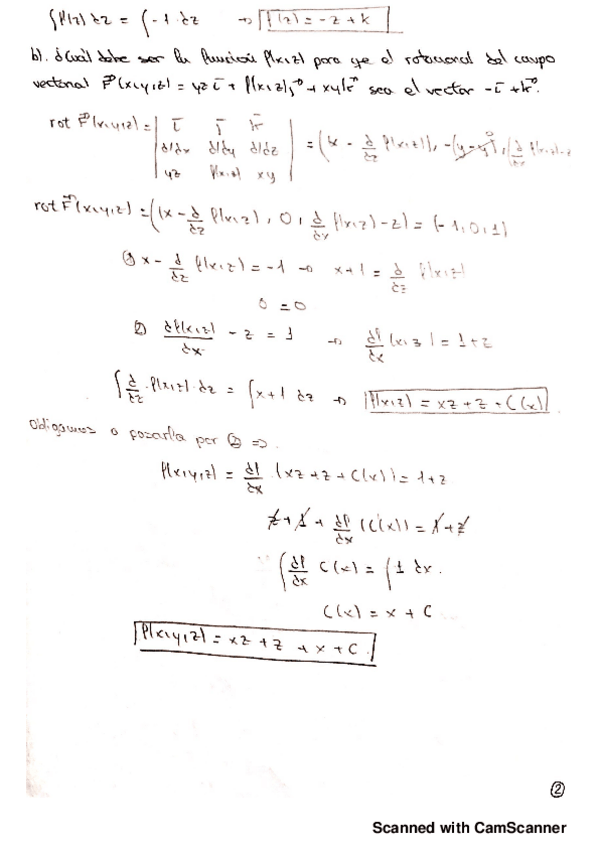 ∫f'(z) dz = ∫-1·dz → f(z) = -z + k
b). ¿Cuál debe ser la función f(x,z) para que el rotacional del campo
vectorial F(x,y,z) = yz i + f(x,z) j + xy k sea el vector -i + k.
rot F(x,y,z) = | i j k | d/dx d/dy d/dz | yz f(x,z) xy | = (x - d/dz f(x,z)), -(y-y), (d/dx f(x,z) - z
rot F(x,y,z) = (x - d/dz f(x,z), 0, d/dx f(x,z) - z) = (-1,0,1)
① x - d/dz f(x,z) = -1 → x+1 = d/dz f(x,z)
0 = 0
② df(x,z)/dx - z = 1 → df/dx (x,z) = 1+z
∫ d/dz · f(x,z)·dz = ∫ x+1 dz → f(x,z) = xz + z + C(x)
Obligamos a pasarla por ② ⇒.
f(x,y,z) = df/dx · (xz + z + C(x)) = 1+z
z + 1 + df/dx (C(x)) = 1+z
∫ df/dx C(x) = ∫ 1 dx.
C(x) = x + C
f(x,y,z) = xz + z + x + C.
②
Scanned with CamScanner